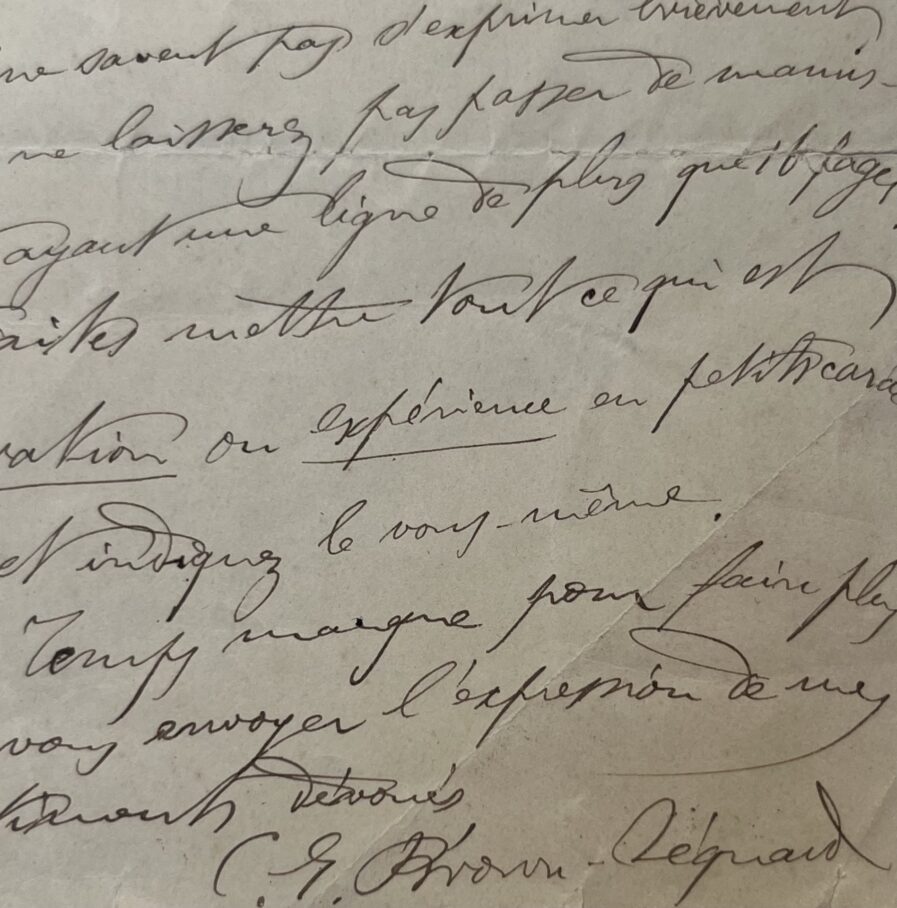 ne savent pas s'exprimer brièvement
ne laisserez pas passer de manus-
ayant une ligne de plus que 16 pages
aites mettre tout ce qui est
vation ou expérience en petits cara
et indiquez le vous-même.
Temps manque pour faire plus
vous envoyer l'expression de mes
timents dévoués
C. E. Brown-Séquard